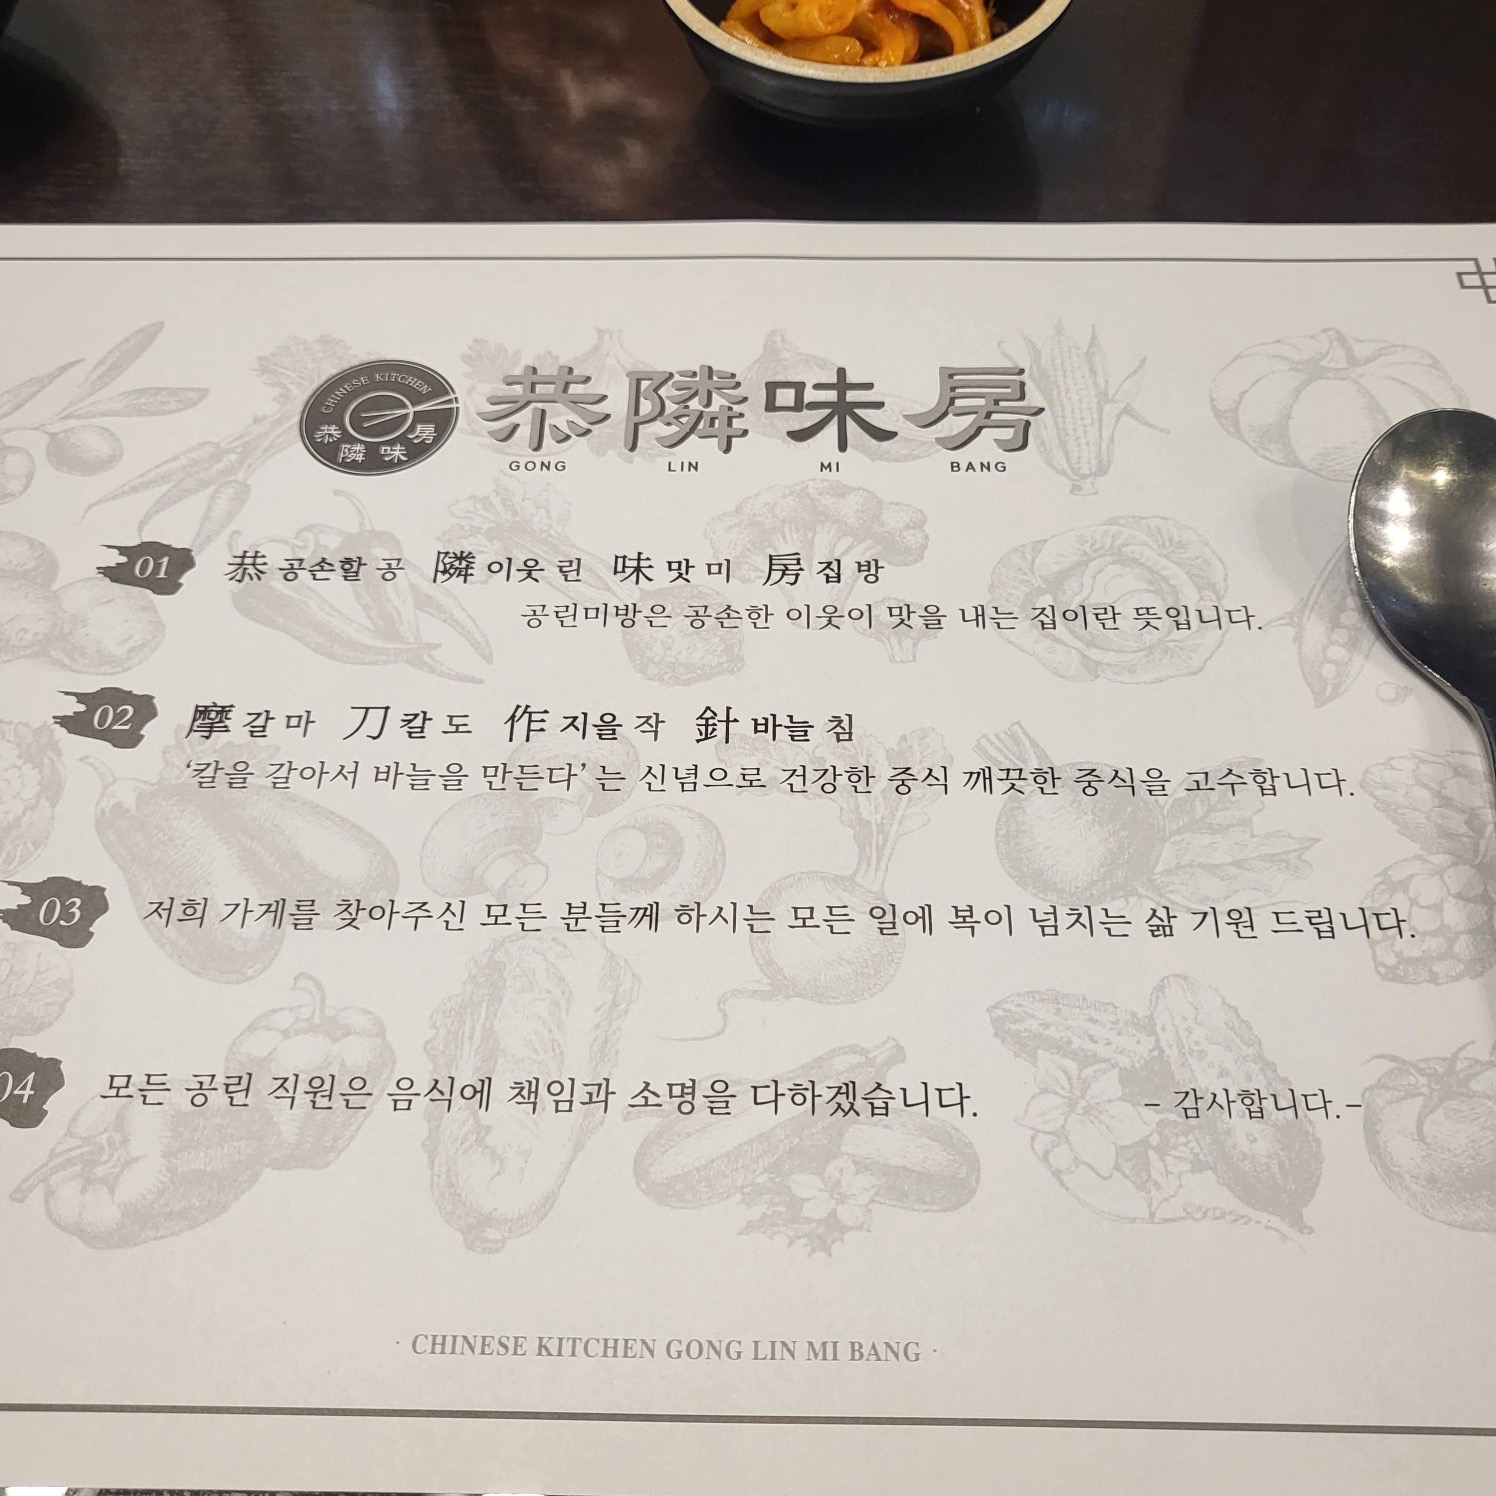 CHINESE KITCHEN
恭隣味房
恭隣味房
GONG LIN MI BANG
01 恭 공손할 공 隣 이웃 린 味 맛 미 房 집 방
공린미방은 공손한 이웃이 맛을 내는 집이란 뜻입니다.
02 摩 갈 마 刀 칼 도 作 지을 작 針 바늘 침
‘칼을 갈아서 바늘을 만든다’는 신념으로 건강한 중식 깨끗한 중식을 고수합니다.
03 저희 가게를 찾아주신 모든 분들께 하시는 모든 일에 복이 넘치는 삶 기원 드립니다.
04 모든 공린 직원은 음식에 책임과 소명을 다하겠습니다. - 감사합니다.-
· CHINESE KITCHEN GONG LIN MI BANG ·